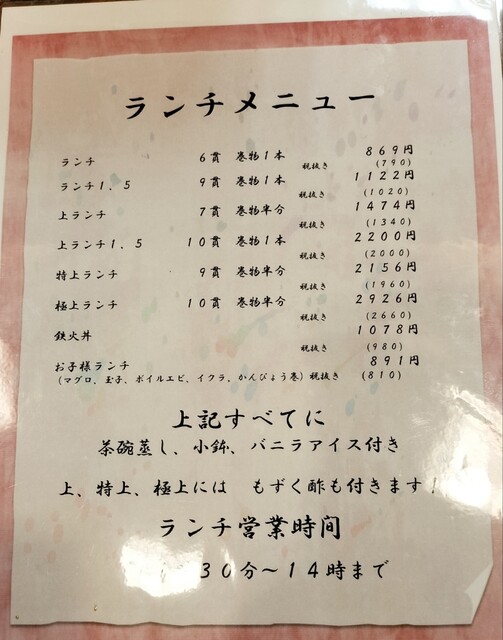 ランチメニュー
ランチ 6貫 巻物1本 869円
税抜き (790)
ランチ1.5 9貫 巻物1本 1122円
税抜き (1020)
上ランチ 7貫 巻物半分 1474円
税抜き (1340)
上ランチ1.5 10貫 巻物1本 2200円
税抜き (2000)
特上ランチ 9貫 巻物半分 2156円
税抜き (1960)
極上ランチ 10貫 巻物半分 2926円
税抜き (2660)
鉄火丼 1078円
税抜き (980)
お子様ランチ 891円
(マグロ、玉子、ボイルエビ、イクラ、かんぴょう巻) 税抜き (810)
上記すべてに
茶碗蒸し、小鉢、バニラアイス付き
上、特上、極上には もずく酢も付きます!
ランチ営業時間
30分~14時まで